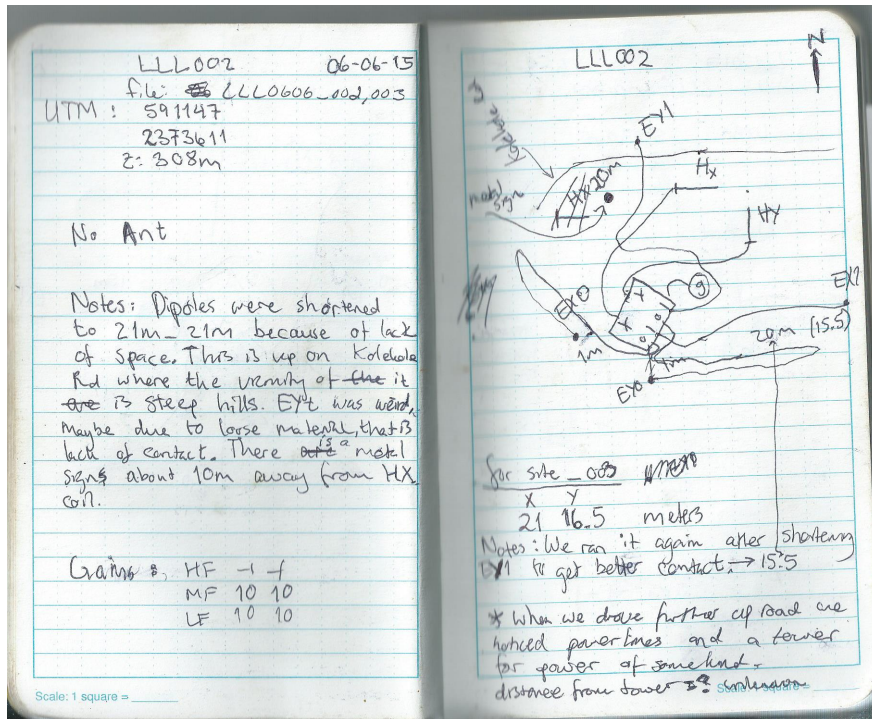 LLL002 06-06-15
file: LLL0606_002,003
UTM: 591147
2373611
Z: 308m
No Ant
Notes: Dipoles were shortened
to 21m_21m because of lack
of space. This is up on Kolekole
Rd where the vicinity of the it
are is steep hills. EY1 was weird,
maybe due to loose material, that is
lack of contact. There is a metal
signs about 10m away from HX
coil.
Gains: HF -1 -1
MF 10 10
LF 10 10
Scale: 1 square =
LLL002
N
Kolekole Rd
EY1
metal sign
HX 20m
Hx
HY
EX0
1m
EX1
20m (15.5)
1m
EY0
for site _003
X Y
21 16.5 meters
Notes: We ran it again after shortening
EY1 to get better contact. → 15.5
* When we drove further up road we
noticed powerlines and a tower
for power of some kind.
distance from tower is unknown
Scale: 1 square =